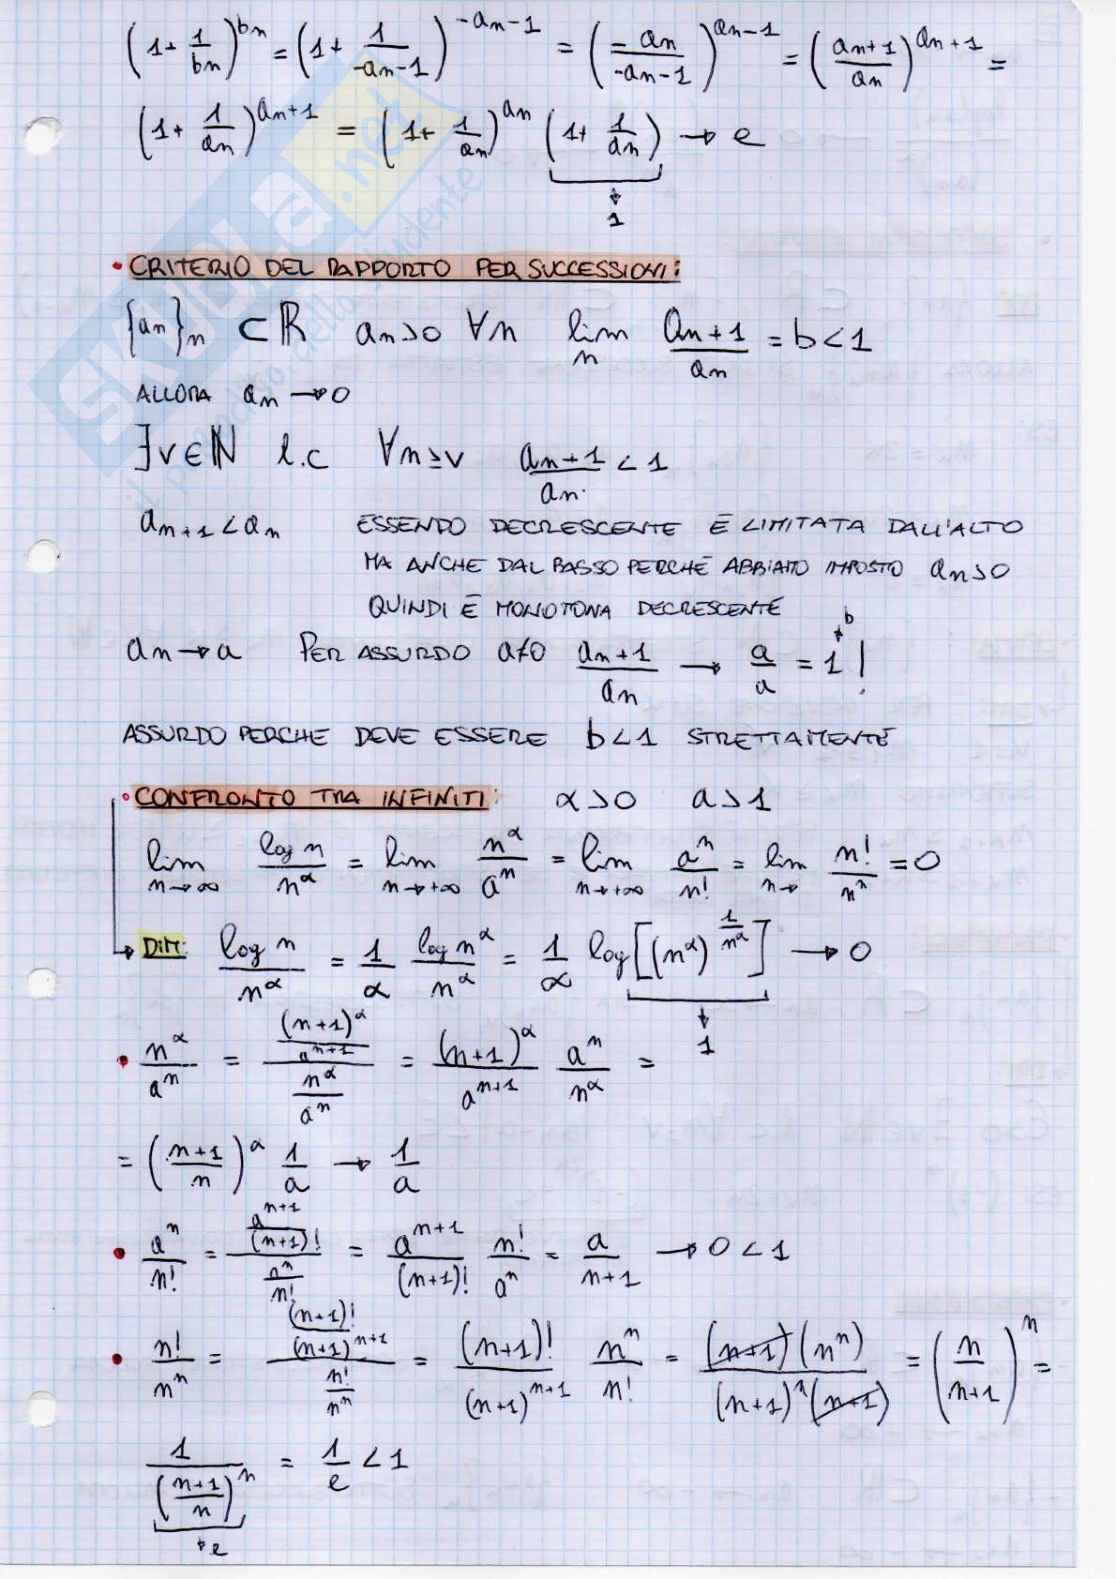 (1+ 1/bn)^bn = (1+ 1/(-an-1))^(-an-1) = (-an/(-an-1))^(an-1) = ((an+1)/an)^(an+1) =
(1+ 1/an)^(an+1) = (1+ 1/an)^an (1+ 1/an) → e
↓
1
• CRITERIO DEL RAPPORTO PER SUCCESSIONI:
{an}n ⊂ ℝ an>0 ∀n lim n an+1/an = b<1
ALLORA an → 0
∃ν∈ℕ t.c ∀n≥ν an+1/an < 1
an+1 < an ESSENDO DECRESCENTE È LIMITATA DALL'ALTO
MA ANCHE DAL BASSO PERCHÉ ABBIAMO IMPOSTO an>0
QUINDI È MONOTONA DECRESCENTE
an → a PER ASSURDO a≠0 an+1/an → a/a = 1 ! b
ASSURDO PERCHE DEVE ESSERE b<1 STRETTAMENTE
• CONFRONTO TRA INFINITI: α>0 a>1
lim n→∞ log n/n^α = lim n→+∞ n^α/a^n = lim n→+∞ a^n/n! = lim n→ n!/n^n = 0
DIM: log n/n^α = 1/α log n^α/n^α = 1/α log[(n^α)^(1/n^α)] → 0
↓
1
• n^α/a^n = ((n+1)^α/a^(n+1))/(n^α/a^n) = (n+1)^α/a^(n+1) a^n/n^α =
= ((n+1)/n)^α 1/a → 1/a
• a^n/n! = (a^(n+1)/(n+1)!)/(a^n/n!) = a^(n+1)/(n+1)! n!/a^n = a/(n+1) → 0 < 1
• n!/n^n = ((n+1)!/(n+1)^(n+1))/(n!/n^n) = (n+1)!/(n+1)^(n+1) n^n/n! = (n+1)(n^n)/((n+1)^n(n+1)) = (n/(n+1))^n =
1/((n+1)/n)^n = 1/e < 1
→ e
SKUOLA.net